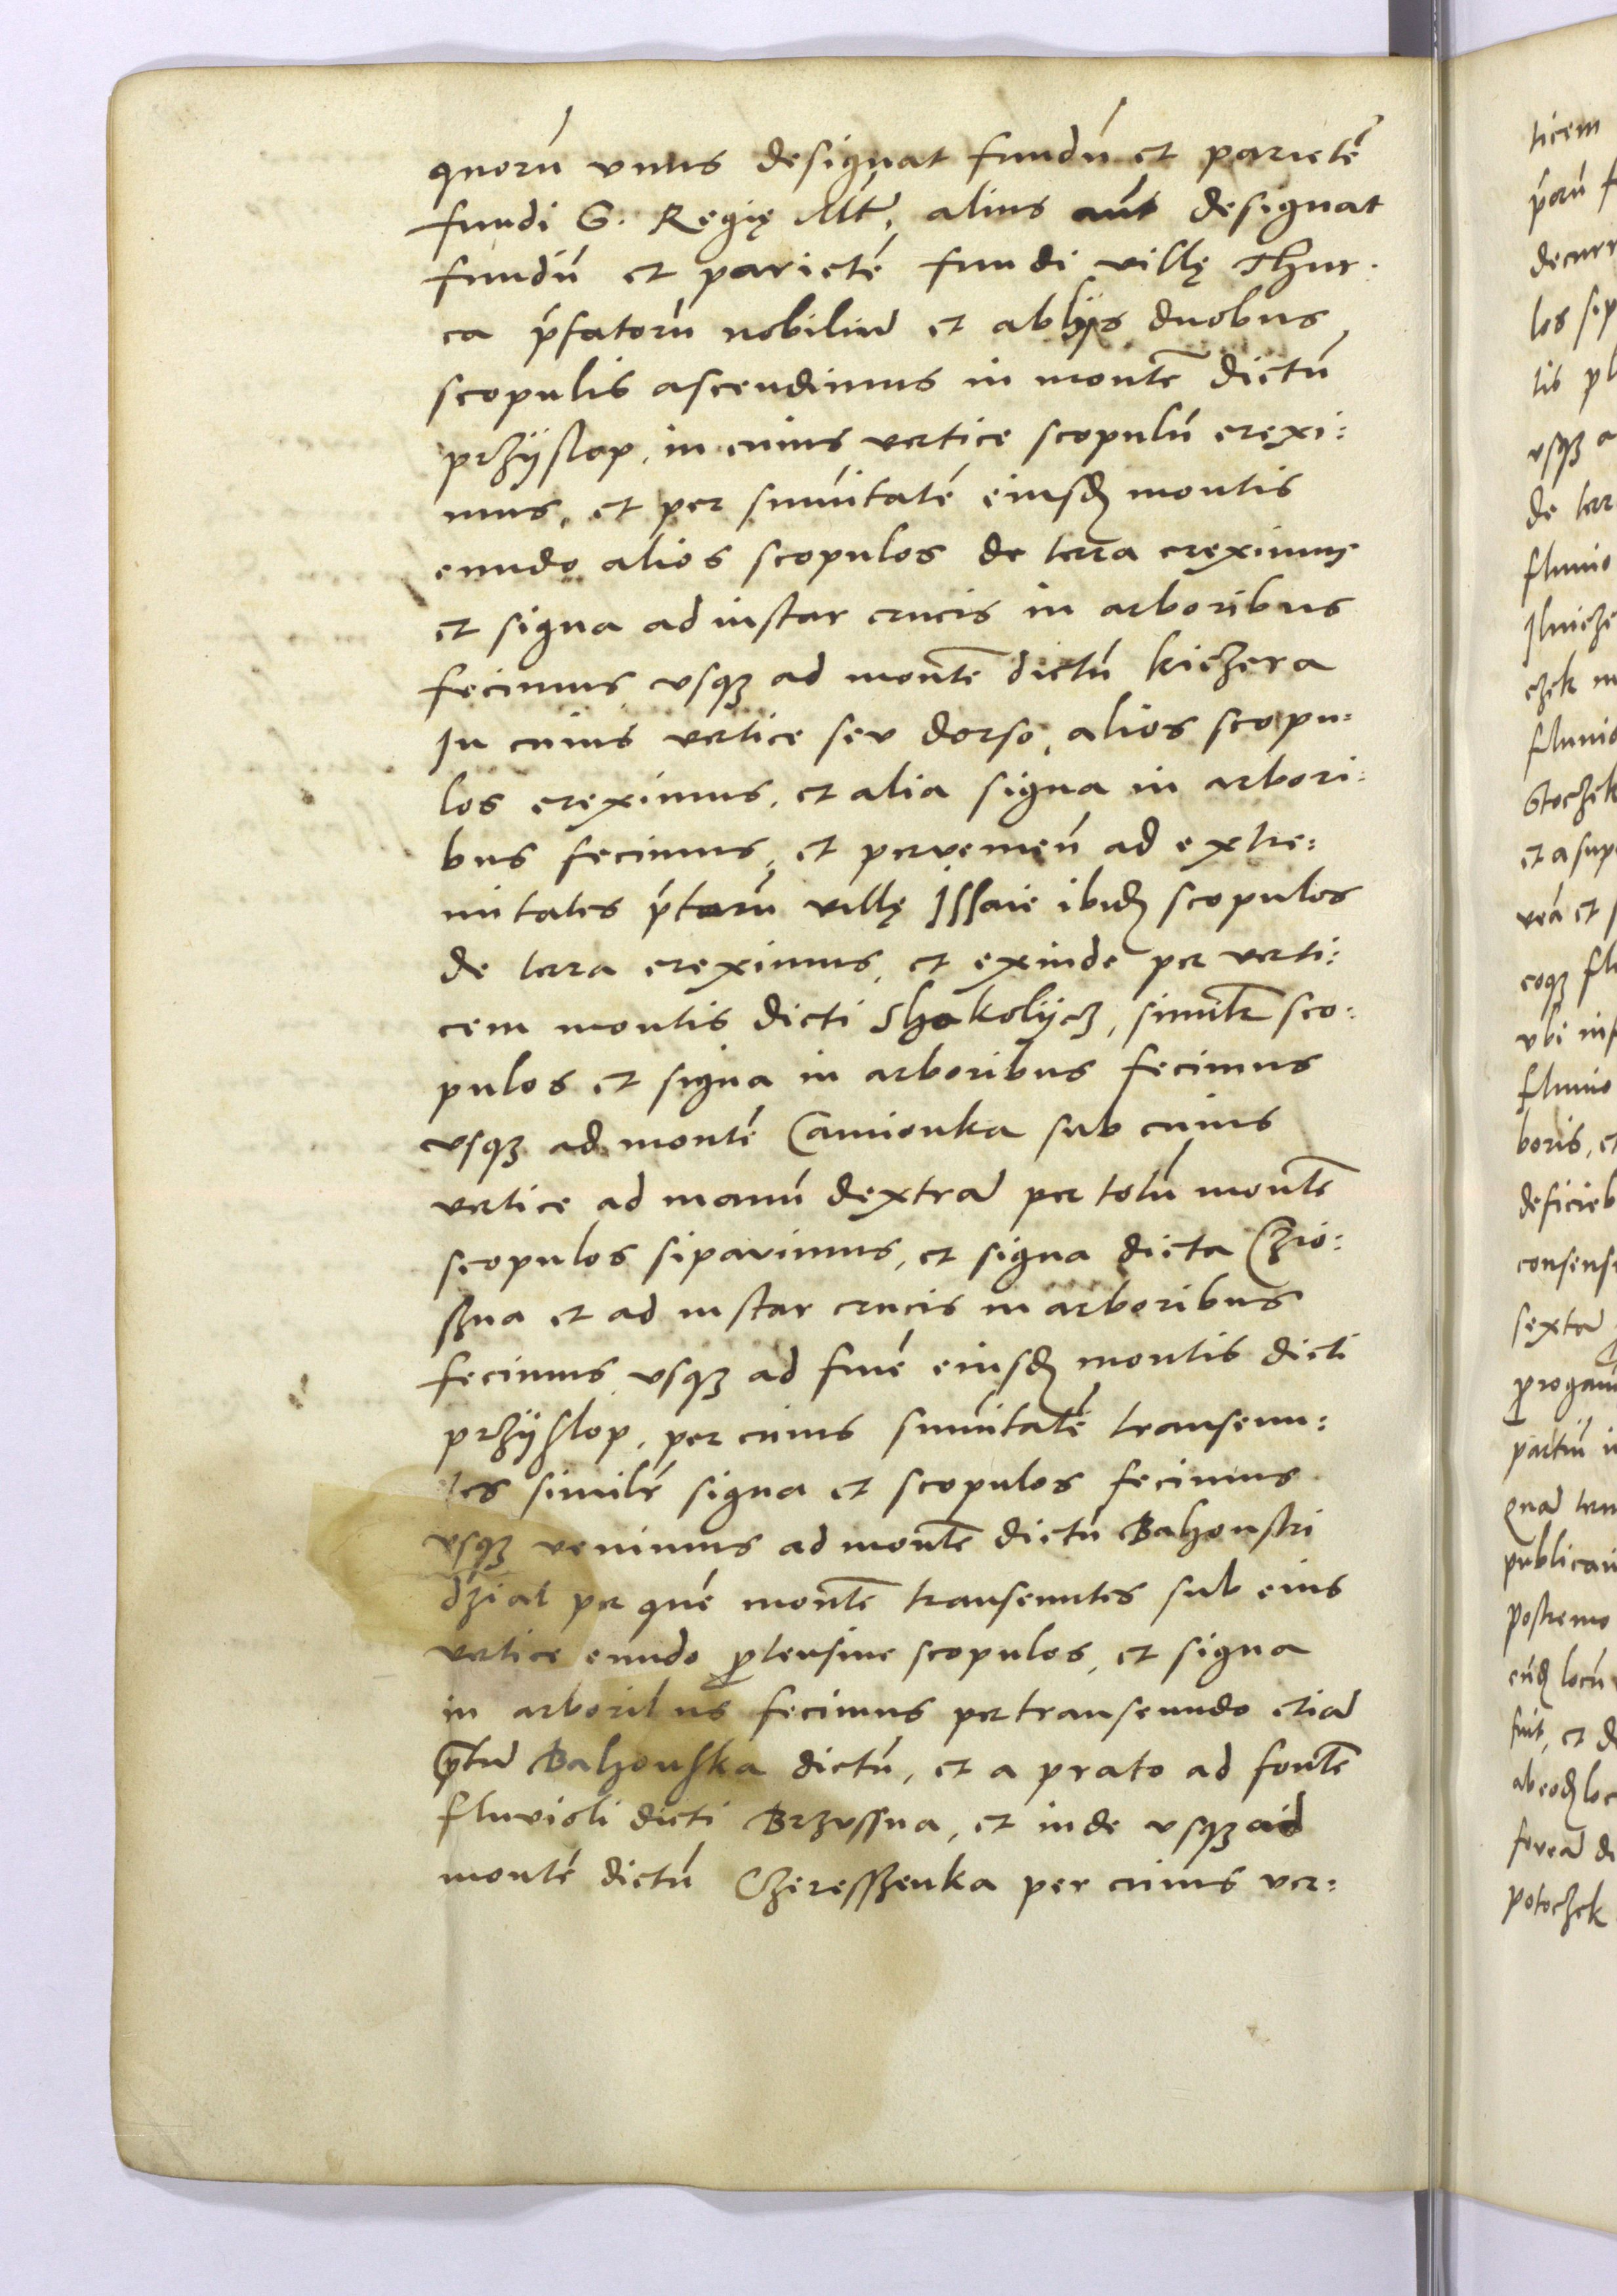 quorū vnus designat fundū et parietē
fundi S. Regię Mtį, alius aūt designat
fundū et parietē fundi villę Thur-
ca pfatorū nobiliū et ab hys duobus
scopulis ascendimus in montē dictū
przÿslop, in cuius vertice scopulū erexi:
mus, et per sumitatē eiusdꝫ montis
eundo alios scopulos de terra ereximus
et signa ad instar crucis in arboribus
fecimus vsqꝫ ad montē dictū kiczera
In cuius vertice seu dorso, alios scopu:
los ereximus, et alia signa in arbori:
bus fecimus, et peruemeū ad extre:
mitates ptarū villę Issaie ibidꝫ scopulos
de terra ereximus, et exinde per verti:
cem montis dicti Shokolÿcz, similr sco:
pulos et signa in arboribus fecimus
vsqꝫ ad montē Camionka sub cuius
vertice ad manū dextrā per totū montē
scopulos sipauimus, et signa dicta Czio:
szna et ad instar crucis in arboribus
fecimus vsqꝫ ad finē eiusdꝫ montis dicti
przÿslop, per cuius sumitatē transeun:
tes similr signa et scopulos fecimus
vsqꝫ venimus ad montē dictū Bahonstri
dzial per quē montē transeuntes sub eius
vertice eundo ꝓtensiue scopulos, et signa
in arboribus fecimus pertranseundo etiā
ptū Bahonska dictū, et a prato ad fontē
fluuioli dicti Brzussna, et inde vsqꝫ ad
montē dictū Czeresszenka per cuius ver:
ticem
decurr
los sip
tis pl
vsqꝫ a
de terr
fluuio
czek
fluuio
et a sup
vbi
fluuio
boris, et
deficieb
consens
sextā
publicau
postremo
potoczek